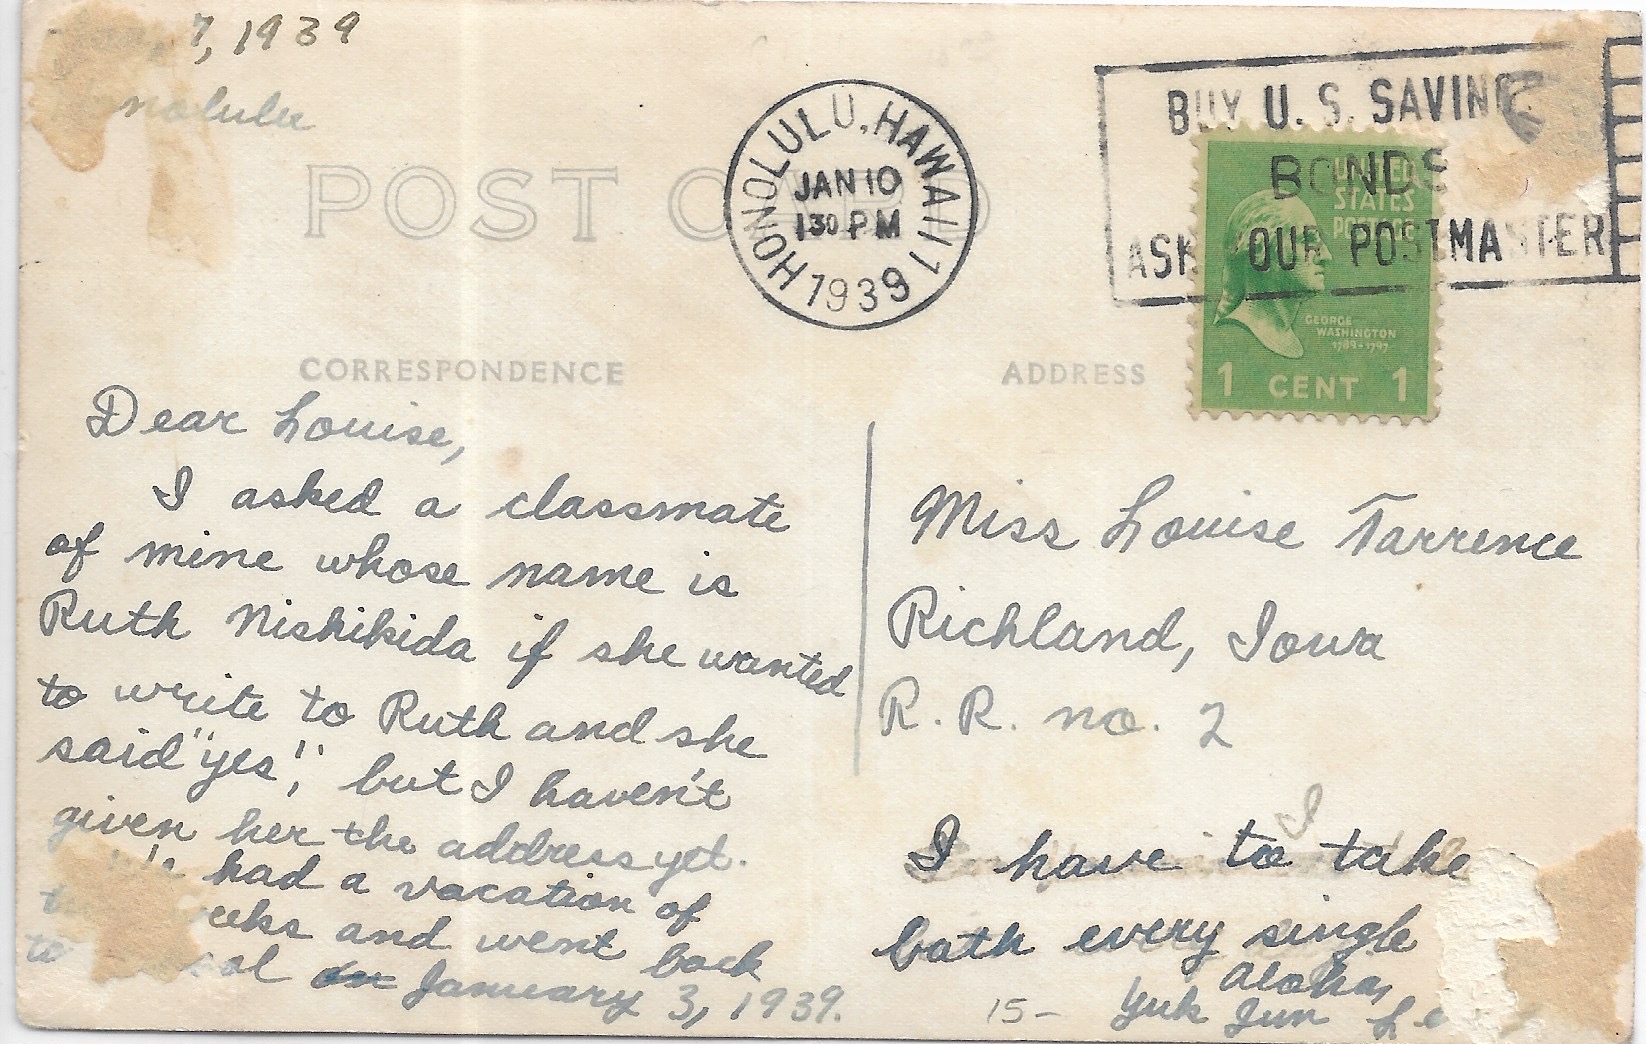 7, 1939
nolulu
POST CARD
HONOLULU, HAWAII
JAN 10
1 30 PM
1939
BUY U. S. SAVING
BONDS
ASK OUR POSTMASTER
UNITED
STATES
POSTAGE
GEORGE
WASHINGTON
1789-1797
1 CENT 1
CORRESPONDENCE
ADDRESS
Dear Louise,
I asked a classmate
of mine whose name is
Ruth Nishikida if she wanted
to write to Ruth and she
said "yes", but I haven't
given her the address yet.
had a vacation of
eeks and went back
to ool on January 3, 1939.
Miss Louise Tarrence
Richland, Iowa
R. R. no. 2
I have to take
bath every single
Aloha,
Yuk Jun Le
15-